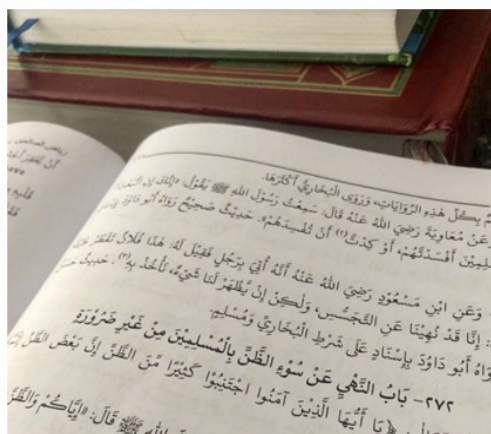 رياض الصالحين
مٌ بِكُلِّ هَذِهِ الرِّوَايَاتِ، وَرَوَى الْبُخَارِيُّ أَكْثَرَهَا.
عَنْ مُعَاوِيَةَ رَضِيَ اللهُ عَنْهُ قَالَ: سَمِعْتُ رَسُوْلَ اللهِ ﷺ يَقُوْلُ: «إِنَّكَ إِنِ اتَّبَعْتَ
لِمِيْنَ أَفْسَدْتَهُمْ، أَوْ كِدْتَ(٢) أَنْ تُفْسِدَهُمْ». حَدِيْثٌ صَحِيْحٌ رَوَاهُ أَبُو دَاوُدَ
وَعَنِ ابْنِ مَسْعُوْدٍ رَضِيَ اللهُ عَنْهُ أَنَّهُ أُتِيَ بِرَجُلٍ فَقِيْلَ لَهُ: هَذَا فُلَانٌ تَقْطُرُ
: إِنَّا قَدْ نُهِيْنَا عَنِ التَّجَسُّسِ، وَلَكِنْ إِنْ يَظْهَرْ لَنَا شَيْءٌ، نَأْخُذْ بِهِ(٣). حَدِيْثٌ حَسَنٌ
وَاهُ أَبُو دَاوُدَ بِإِسْنَادٍ عَلَى شَرْطِ الْبُخَارِيِّ وَمُسْلِمٍ.
٢٧٢- بَابُ النَّهْيِ عَنْ سُوْءِ الظَّنِّ بِالْمُسْلِمِيْنَ مِنْ غَيْرِ ضَرُوْرَةٍ
﴿يَا أَيُّهَا الَّذِيْنَ آمَنُوا اجْتَنِبُوْا كَثِيْرًا مِّنَ الظَّنِّ إِنَّ بَعْضَ الظَّنِّ إِثْمٌ
ﷺ قَالَ: «إِيَّاكُمْ وَالظَّنَّ